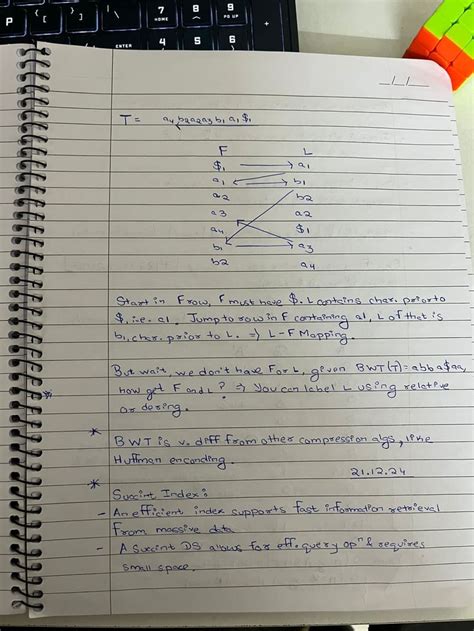 P
[
]
\
7
8
9
PG UP
ENTER
4
5
6
T = a4 b2 a2 a3 b1 a1 $1
F L
$1 a1
a1 b1
a2 b2
a3 a2
a4 $1
b1 a3
b2 a4
Start in F row, F must have $. L contains char. prior to
$, i.e. a1. Jump to row in F containing a1, L of that is
b1, char. prior to L. ⇒ L-F Mapping.
But wait, we don't have F or L, given BWT(T) = abba$aa,
how get F and L? ⇒ You can label L using relative
ordering.
* BWT is v. diff from other compression algs, like
Huffman enconding.
21.12.24
* Succint Index:
- An efficient index supports fast information retrieval
from massive data
- A Succint DS allows for eff. query opⁿ & requires
small space.